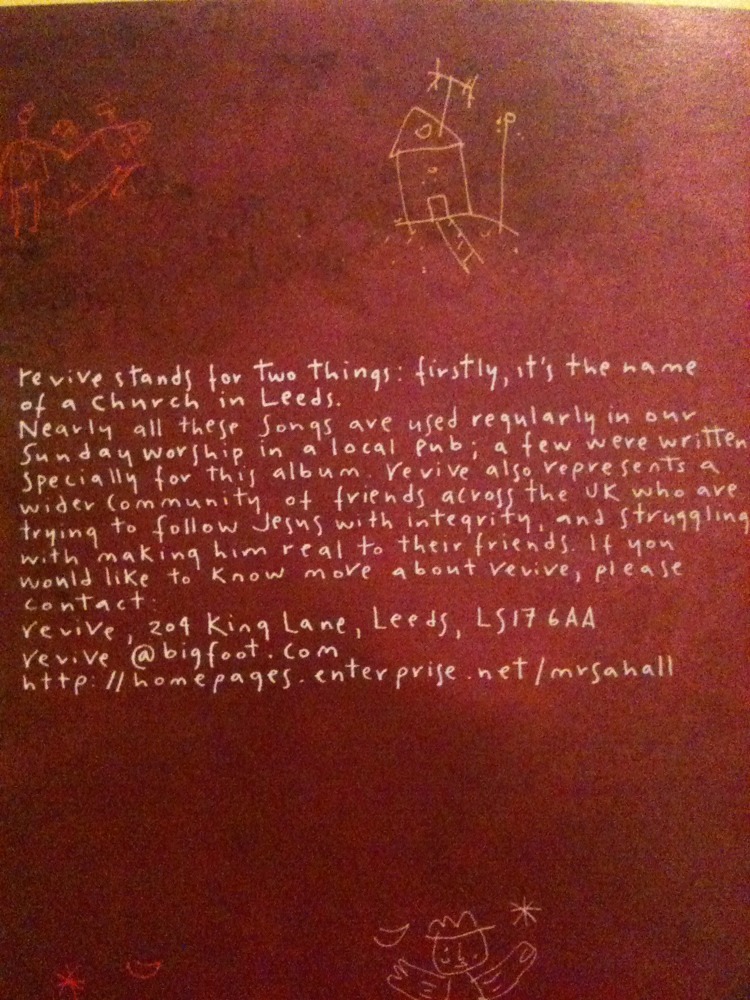 revive stands for two things: firstly, it's the name
of a Church in Leeds.
Nearly all these songs are used regularly in our
Sunday worship in a local pub; a few were written
specially for this album. revive also represents a
wider community of friends across the UK who are
trying to follow Jesus with integrity, and struggling
with making him real to their friends. If you
would like to know more about revive, please
contact:
revive, 209 King Lane, Leeds, LS17 6AA
revive@bigfoot.com
http://homepages.enterprise.net/mrsahall